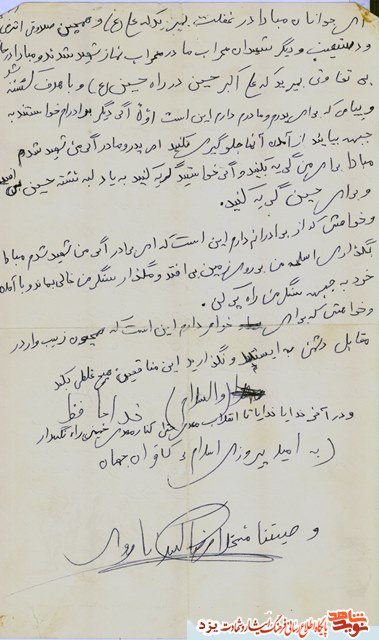 ای جوانان مبادا در غفلت بمیرید که علی (ع) و همچنین صدوقی اشرفی
و دستغیب و دیگر شهیدان محراب ما در محراب نماز شهید شدند و مبادا در
بی تفاوتی بمیرید که علی اکبر حسین در راه حسین (ع) و با هدف کشته شد
و پیامی که برای پدرم و مادرم دارم این است اولا اگر دیگر برادرام خواستند به
جبهه بیایند از آمدن آنها جلوگیری نکنید ای پدر و مادر اگر من شهید شدم
مبادا برای من گریه بکنید و اگر خواستید گریه کنید به یاد لب تشنه حسین
و برای حسین گریه کنید.
و خواهش که از برادرانم دارم این است که ای برادر اگر من شهید شدم مبادا
بگذاری اسلحه من بر روی زمین بی افتد و نگذار سنگر من خالی بماند و با آمدن
خود به جبهه سنگر من را پر کنی.
و خواهش که برای خواهرم دارم این است که همچون زینب وار در
مقابل دشمن به ایستد و نگذارید این منافقین هیچ غلطی بکند
(والسلام) خدا حافظ
و در آخر خدایا خدایا تا انقلاب مهدی حتی کنار مهدی خمینی را نگهدار
(به امید پیروزی اسلام بر کافران جهان
وصیتنامه
شاهد
نوید
پایگاه اطلاع رسانی فرهنگ ایثار و شهادت یزد